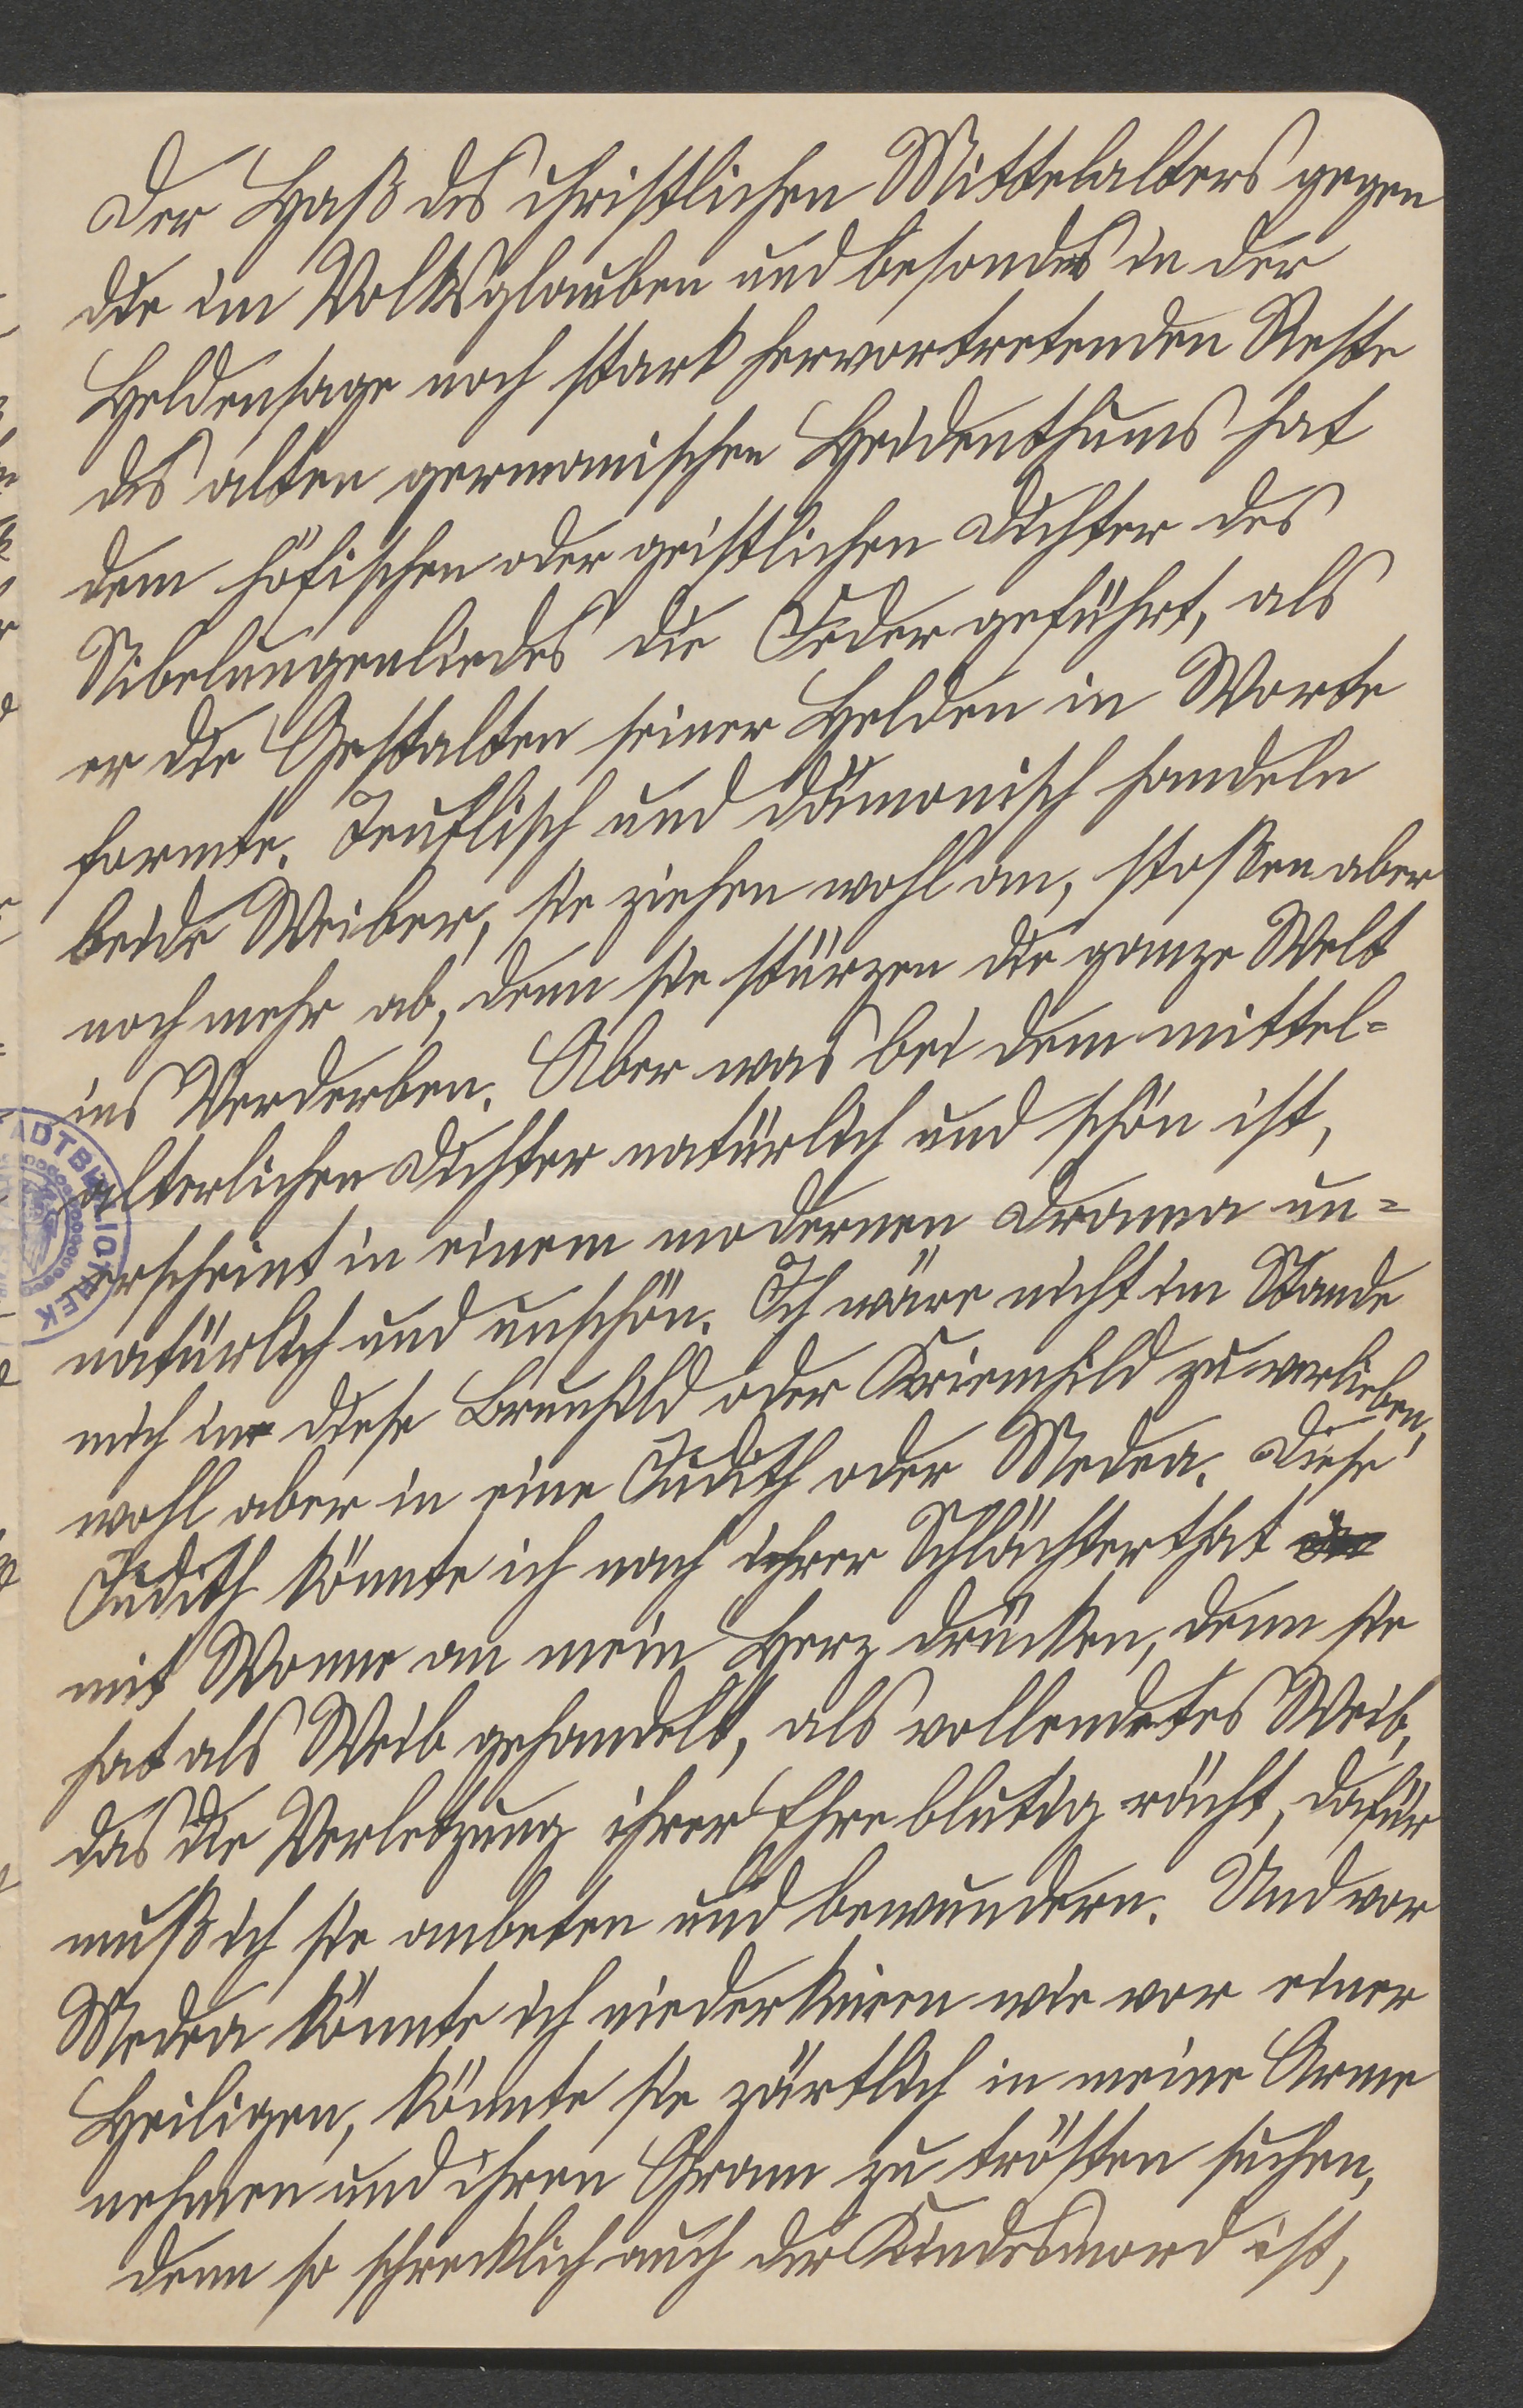 Der Haß des christlichen Mittelalters gegen
die im Volksglauben und besonders in der
Heldensage noch stark hervortretenden Reste
des alten germanischen Heidenthums hat
dem höfischen oder geistlichen Dichter des
Nibelungenliedes die Feder geführt, als
er die Gestalten seiner Helden in Worte
formte. Teuflisch und dämonisch handeln
beide Weiber, sie ziehen wohl an, stoßen aber
noch mehr ab, denn sie stürzen die ganze Welt
ins Verderben. Aber was bei dem mittel=
alterlichen Dichter natürlich und schön ist,
erscheint in einem modernen Drama un=
natürlich und unschön. Ich wäre nicht im Stande
mich in diese Brunhild oder Kriemhild zu verlieben,
wohl aber in eine Judith oder Medea. Diese
Judith könnte ich nach ihrer Schlächterthat
mit Wonne an mein Herz drücken, denn sie
hat als Weib gehandelt, als vollendetes Weib,
das die Verletzung ihrer Ehre blutig rächt, dafür
muß ich sie anbeten und bewundern. Und vor
Medea könnte ich niederknieen wie vor einer
Heiligen, könnte sie zärtlich in meine Arme
nehmen und ihren Gram zu trösten suchen,
denn so schrecklich auch der Kindesmord ist,
STADTBIBLIOTHEK